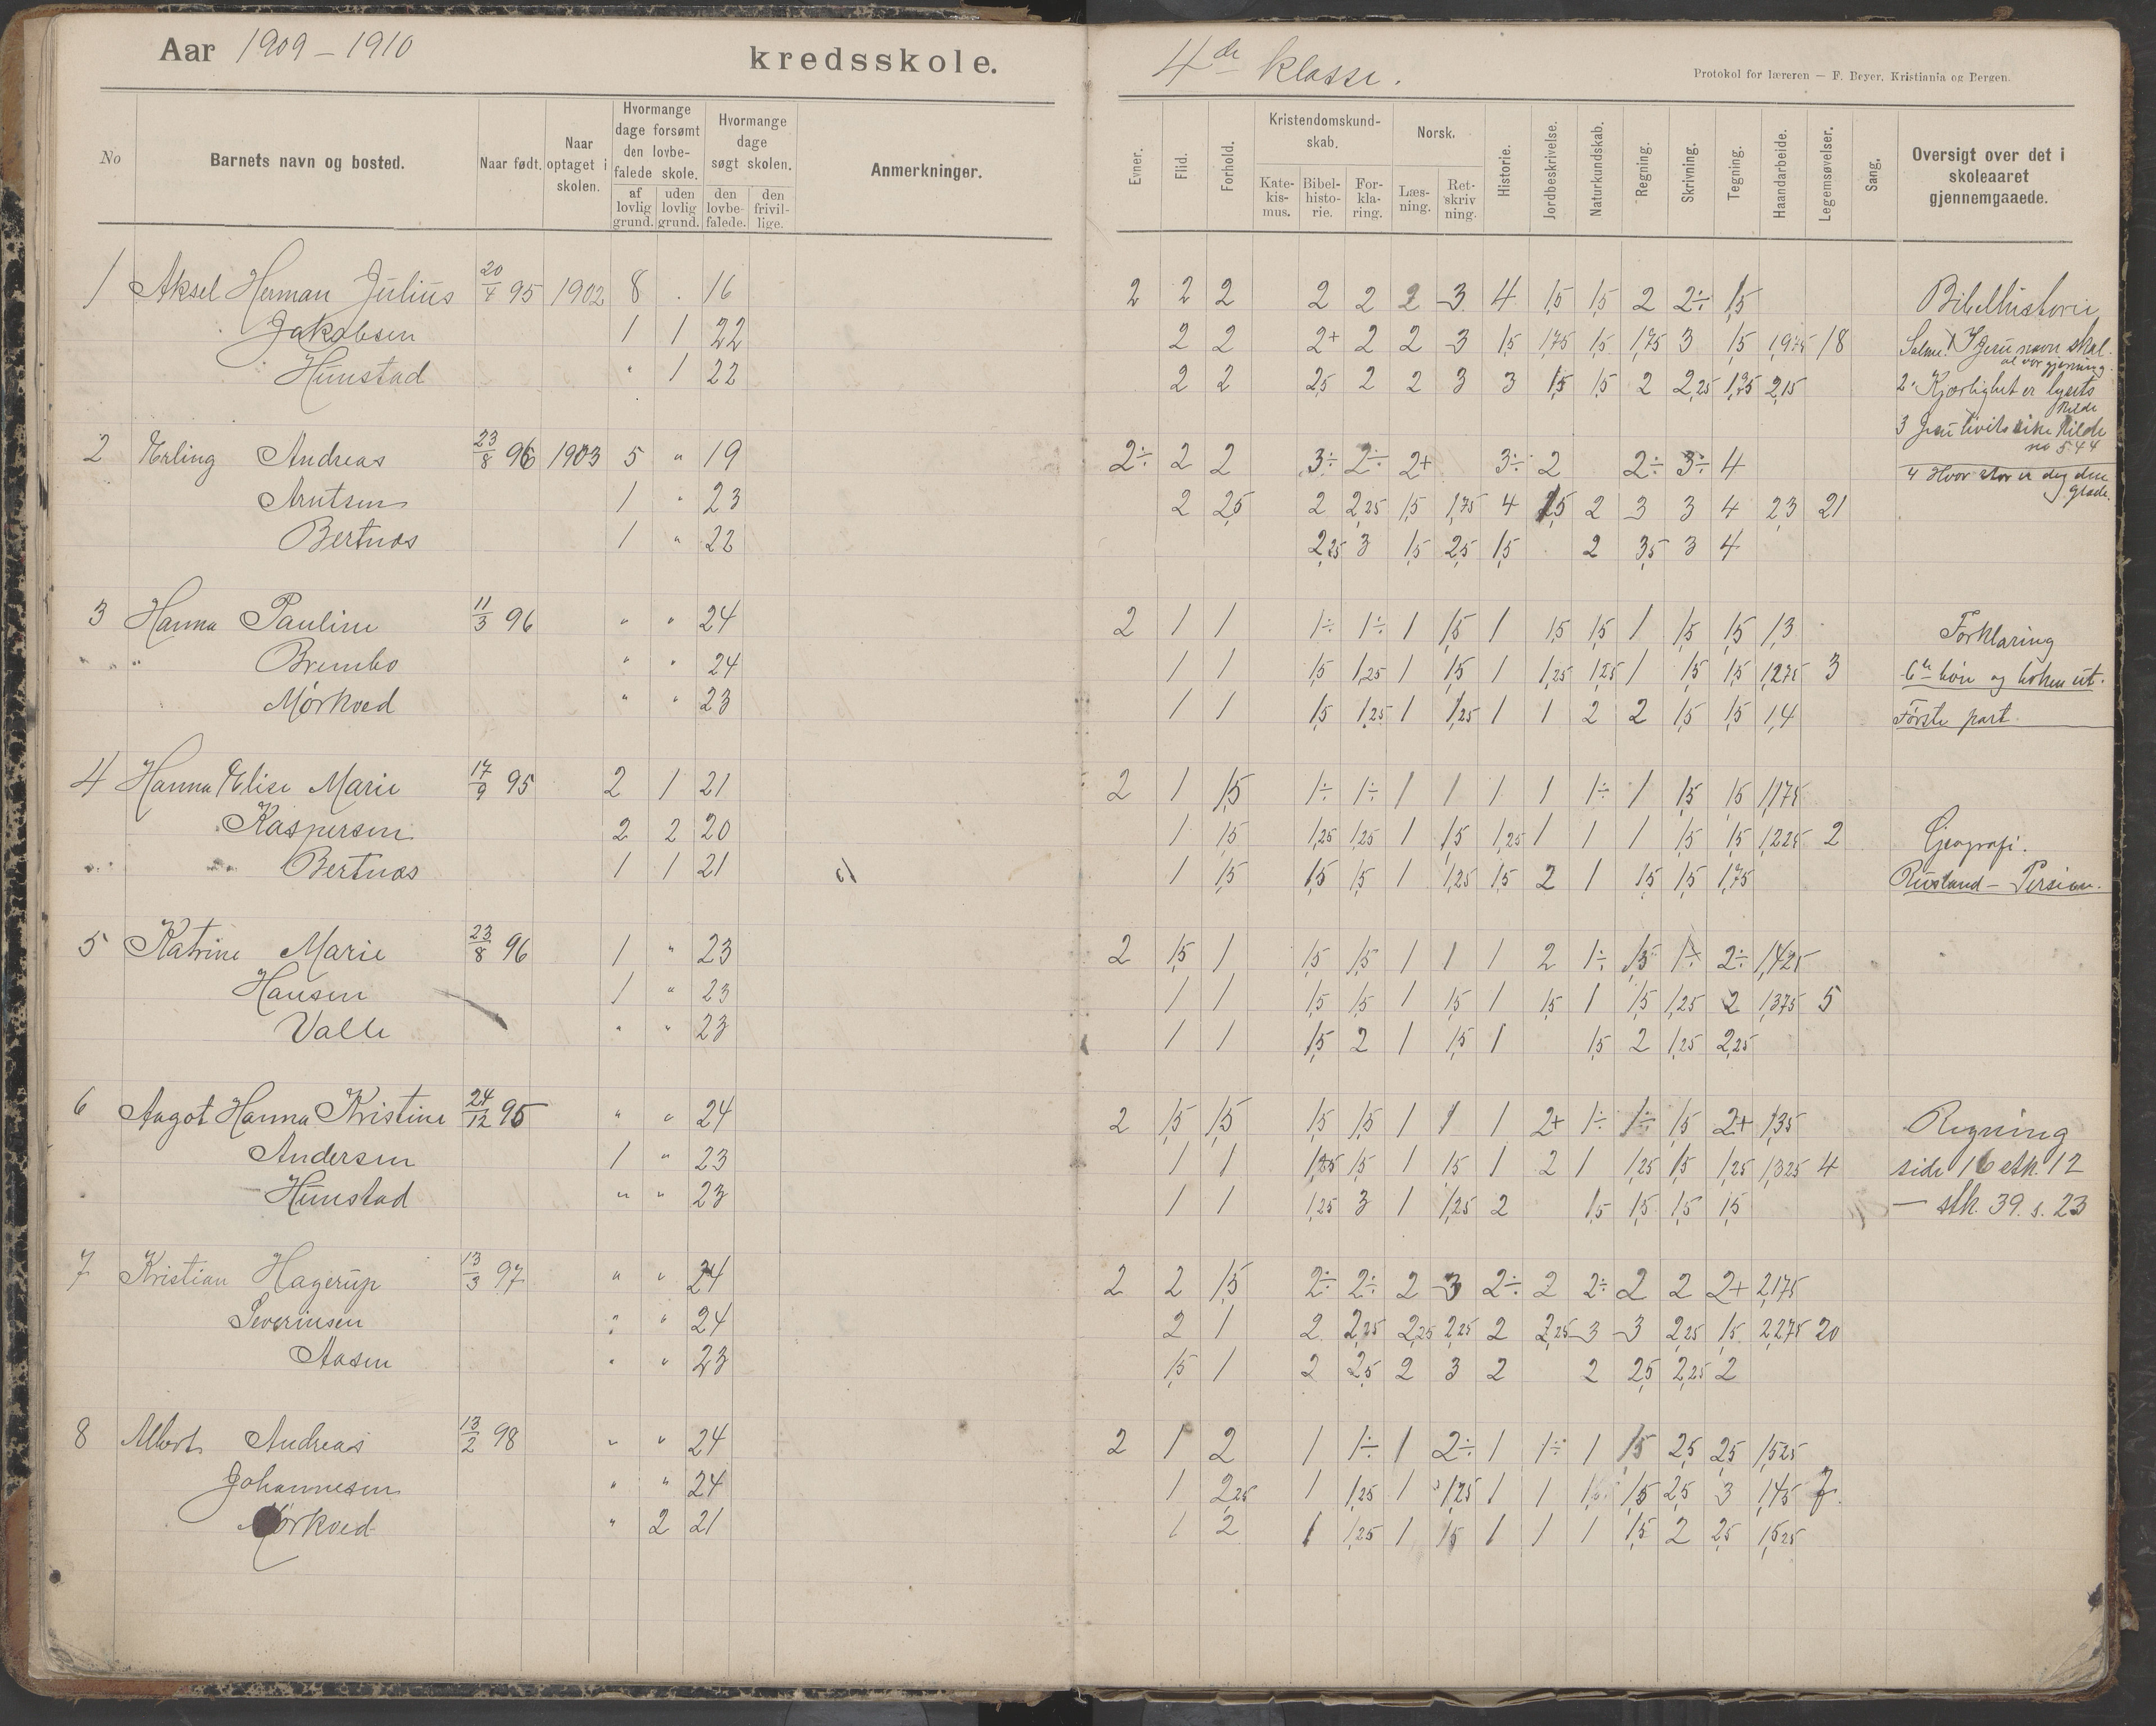 Aar 1909 – 1910 kredsskole.
4de klasse.
Protokol for læreren — F. Beyer, Kristiania og Bergen.
No Barnets navn og bosted. Naar født. Naar optaget i skolen. Hvormange dage forsømt den lovbefalede skole. af lovlig grund. uden lovlig grund. Hvormange dage søgt skolen. den lovbefalede. den frivillige. Anmerkninger.
Evner. Flid. Forhold. Kristendomskundskab. Katekismus. Bibelhistorie. Forklaring. Norsk. Læsning. Retskrivning. Historie. Jordbeskrivelse. Naturkundskab. Regning. Skrivning. Tegning. Haandarbeide. Legemsøvelser. Sang. Oversigt over det i skoleaaret gjennemgaaede.
1 Aksel Herman Julius 20/4 95 1902 8 . 16 2 2 2 2 2 2 3 4 1,5 1,5 2 2÷ 1,5 Bibelhistorie
Jakobsen 1 1 22 2 2 2+ 2 2 3 1,5 1,75 1,5 1,75 3 1,5 1,975 18 Salme. 1 I Jesu navn skal al vor gjerning.
Hunstad " 1 22 2 2 2,5 2 2 3 3 1,5 1,5 2 2,25 1,75 2,15 2. Kjærlighet er lysets kilde
3 Jesu livets rike kilde no 544
2 Erling Andreas 23/8 96 1903 5 " 19 2÷ 2 2 3÷ 2÷ 2+ 3÷ 2 2÷ 3÷ 4 4 Hvor stor er dog den glæde.
Arntsen 1 " 23 2 2,5 2 2,25 1,5 1,75 4 2,5 2 3 3 4 2,3 21
Bertnæs 1 " 22 2,25 3 1,5 2,5 1,5 2 3,5 3 4
3 Hanna Pauline 11/3 96 " " 24 2 1 1 1÷ 1÷ 1 1,5 1 1,5 1,5 1 1,5 1,5 1,3 Forklaring
Brembo " " 24 1 1 1,5 1,25 1 1,5 1 1,25 1,25 1 1,5 1,5 1,275 3 6te bøn og boken ut.
Mørkved " " 23 1 1 1,5 1,25 1 1,25 1 1 2 2 1,5 1,5 1,4 Første part
4 Hanna Elise Marie 17/9 95 2 1 21 2 1 1,5 1÷ 1÷ 1 1 1 1 1÷ 1 1,5 1,5 1,175
Kaspersen 2 2 20 1 1,5 1,25 1,25 1 1,5 1,25 1 1 1 1,5 1,5 1,225 2 Geografi.
Bertnæs 1 1 21 1 1,5 1,5 1,5 1 1,25 1,5 2 1 1,5 1,5 1,75 Rusland – Persien.
5 Katrine Marie 23/8 96 1 " 23 2 1,5 1 1,5 1,5 1 1 1 2 1÷ 1,5 1÷ 2÷ 1,425
Hansen 1 " 23 1 1 1,5 1,5 1 1,5 1 1,5 1 1,5 1,25 2 1,375 5
Valle " " 23 1 1 1,5 2 1 1,5 1 1,5 2 1,25 2,25
6 Aagot Hanna Kristine 24/12 95 " " 24 2 1,5 1,5 1,5 1,5 1 1 1 2+ 1÷ 1÷ 1,5 2+ 1,35 Regning
Andersen 1 " 23 1 1 1,25 1,5 1 1,5 1 2 1 1,25 1,5 1,25 1,325 4 side 16 stk. 12
Hunstad " " 23 1 1 1,25 3 1 1,25 2 1,5 1,5 1,5 1,5 – stk. 39. s. 23
7 Kristian Hagerup 13/3 97 " " 24 2 2 1,5 2÷ 2÷ 2 3 2÷ 2 2÷ 2 2 2+ 2,175
Severinsen " " 24 2 1 2 2,25 2,25 2,25 2 2,25 3 3 2,25 1,5 2,275 20
Aasen " " 23 1,5 1 2 2,5 2 3 2 2 2,5 2,25 2
8 Albert Andreas 13/2 98 " " 24 2 1 2 1 1÷ 1 2÷ 1 1÷ 1 1,5 2,5 2,5 1,525
Johannesen " " 24 1 2,25 1 1,25 1 1,25 1 1 1,5 2,5 3 1,45 7.
Mørkved " 2 21 1 2 1 1,25 1 1,5 1 1 1 1,5 2 2,5 1,525